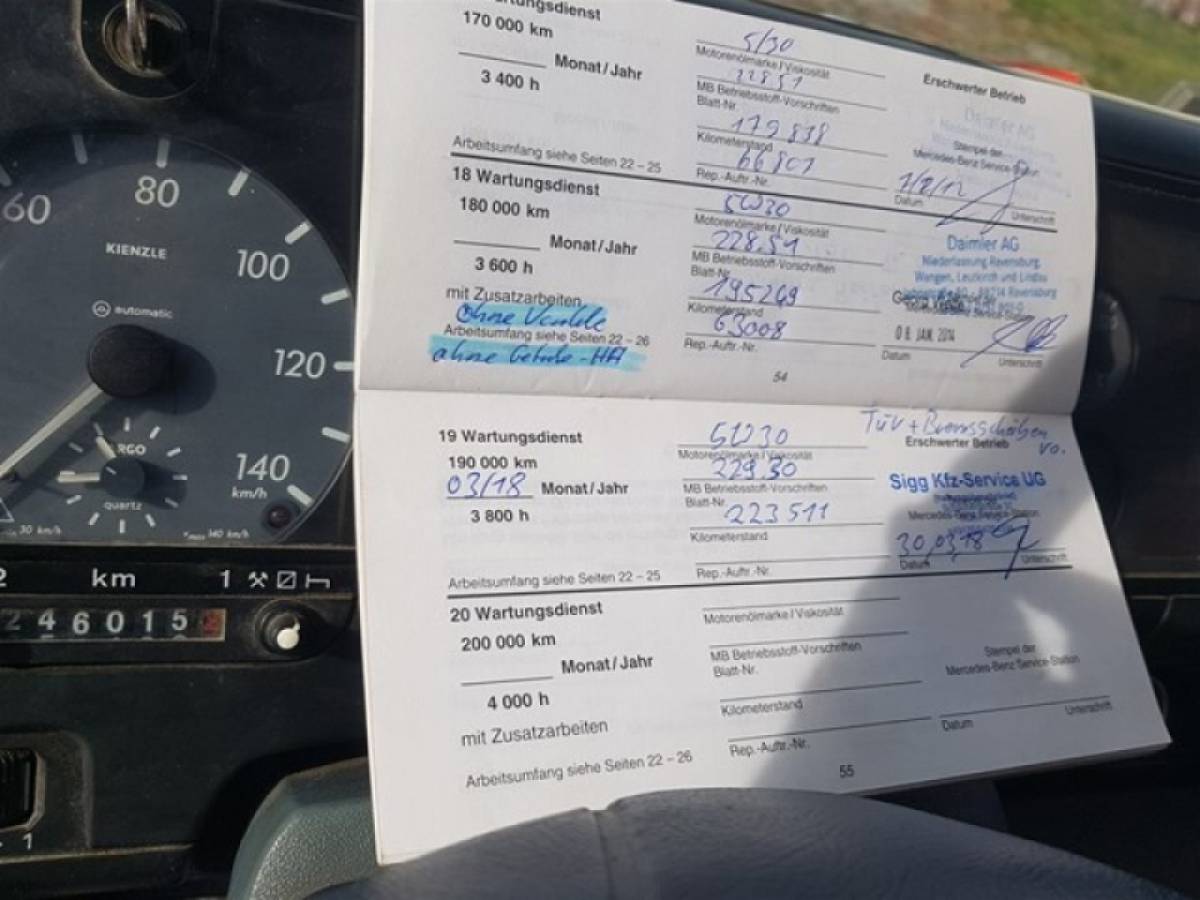 170 000 km
5/30
Motorenölmarke / Viskosität
Monat / Jahr
Erschwerter Betrieb
3 400 h
MB Betriebsstoff-Vorschriften
Blatt-Nr.
Daimler AG
179 838
Kilometerstand
Stempel der
Mercedes-Benz Service-Station
Arbeitsumfang siehe Seiten 22 – 25
66801
Rep.-Auftr.-Nr.
Datum
Unterschrift
18 Wartungsdienst
5W30
Motorenölmarke / Viskosität
180 000 km
228.51
MB Betriebsstoff-Vorschriften
Blatt-Nr.
Monat / Jahr
Daimler AG
Niederlassung Ravensburg,
Wangen, Leutkirch und Lindau
3 600 h
195269
Kilometerstand
mit Zusatzarbeiten
ohne Ventile
63008
Rep.-Auftr.-Nr.
08. JAN. 2014
Arbeitsumfang siehe Seiten 22 – 26
Datum
Unterschrift
54
19 Wartungsdienst
5W30
Motorenölmarke / Viskosität
TÜV + Bremsscheiben
vo.
Erschwerter Betrieb
190 000 km
229.30
MB Betriebsstoff-Vorschriften
Blatt-Nr.
Sigg Kfz-Service UG
03/18 Monat / Jahr
223511
Kilometerstand
Mercedes-Benz Service-Station
3 800 h
30.03.18
Datum
Unterschrift
Arbeitsumfang siehe Seiten 22 – 25
Rep.-Auftr.-Nr.
20 Wartungsdienst
Motorenölmarke / Viskosität
200 000 km
MB Betriebsstoff-Vorschriften
Blatt-Nr.
Stempel der
Mercedes-Benz Service-Station
Monat / Jahr
4 000 h
Kilometerstand
Datum
Unterschrift
mit Zusatzarbeiten
Rep.-Auftr.-Nr.
Arbeitsumfang siehe Seiten 22 – 26
55
60
80
100
120
140
km/h
KIENZLE
automatic
quartz
km
1
246015
1